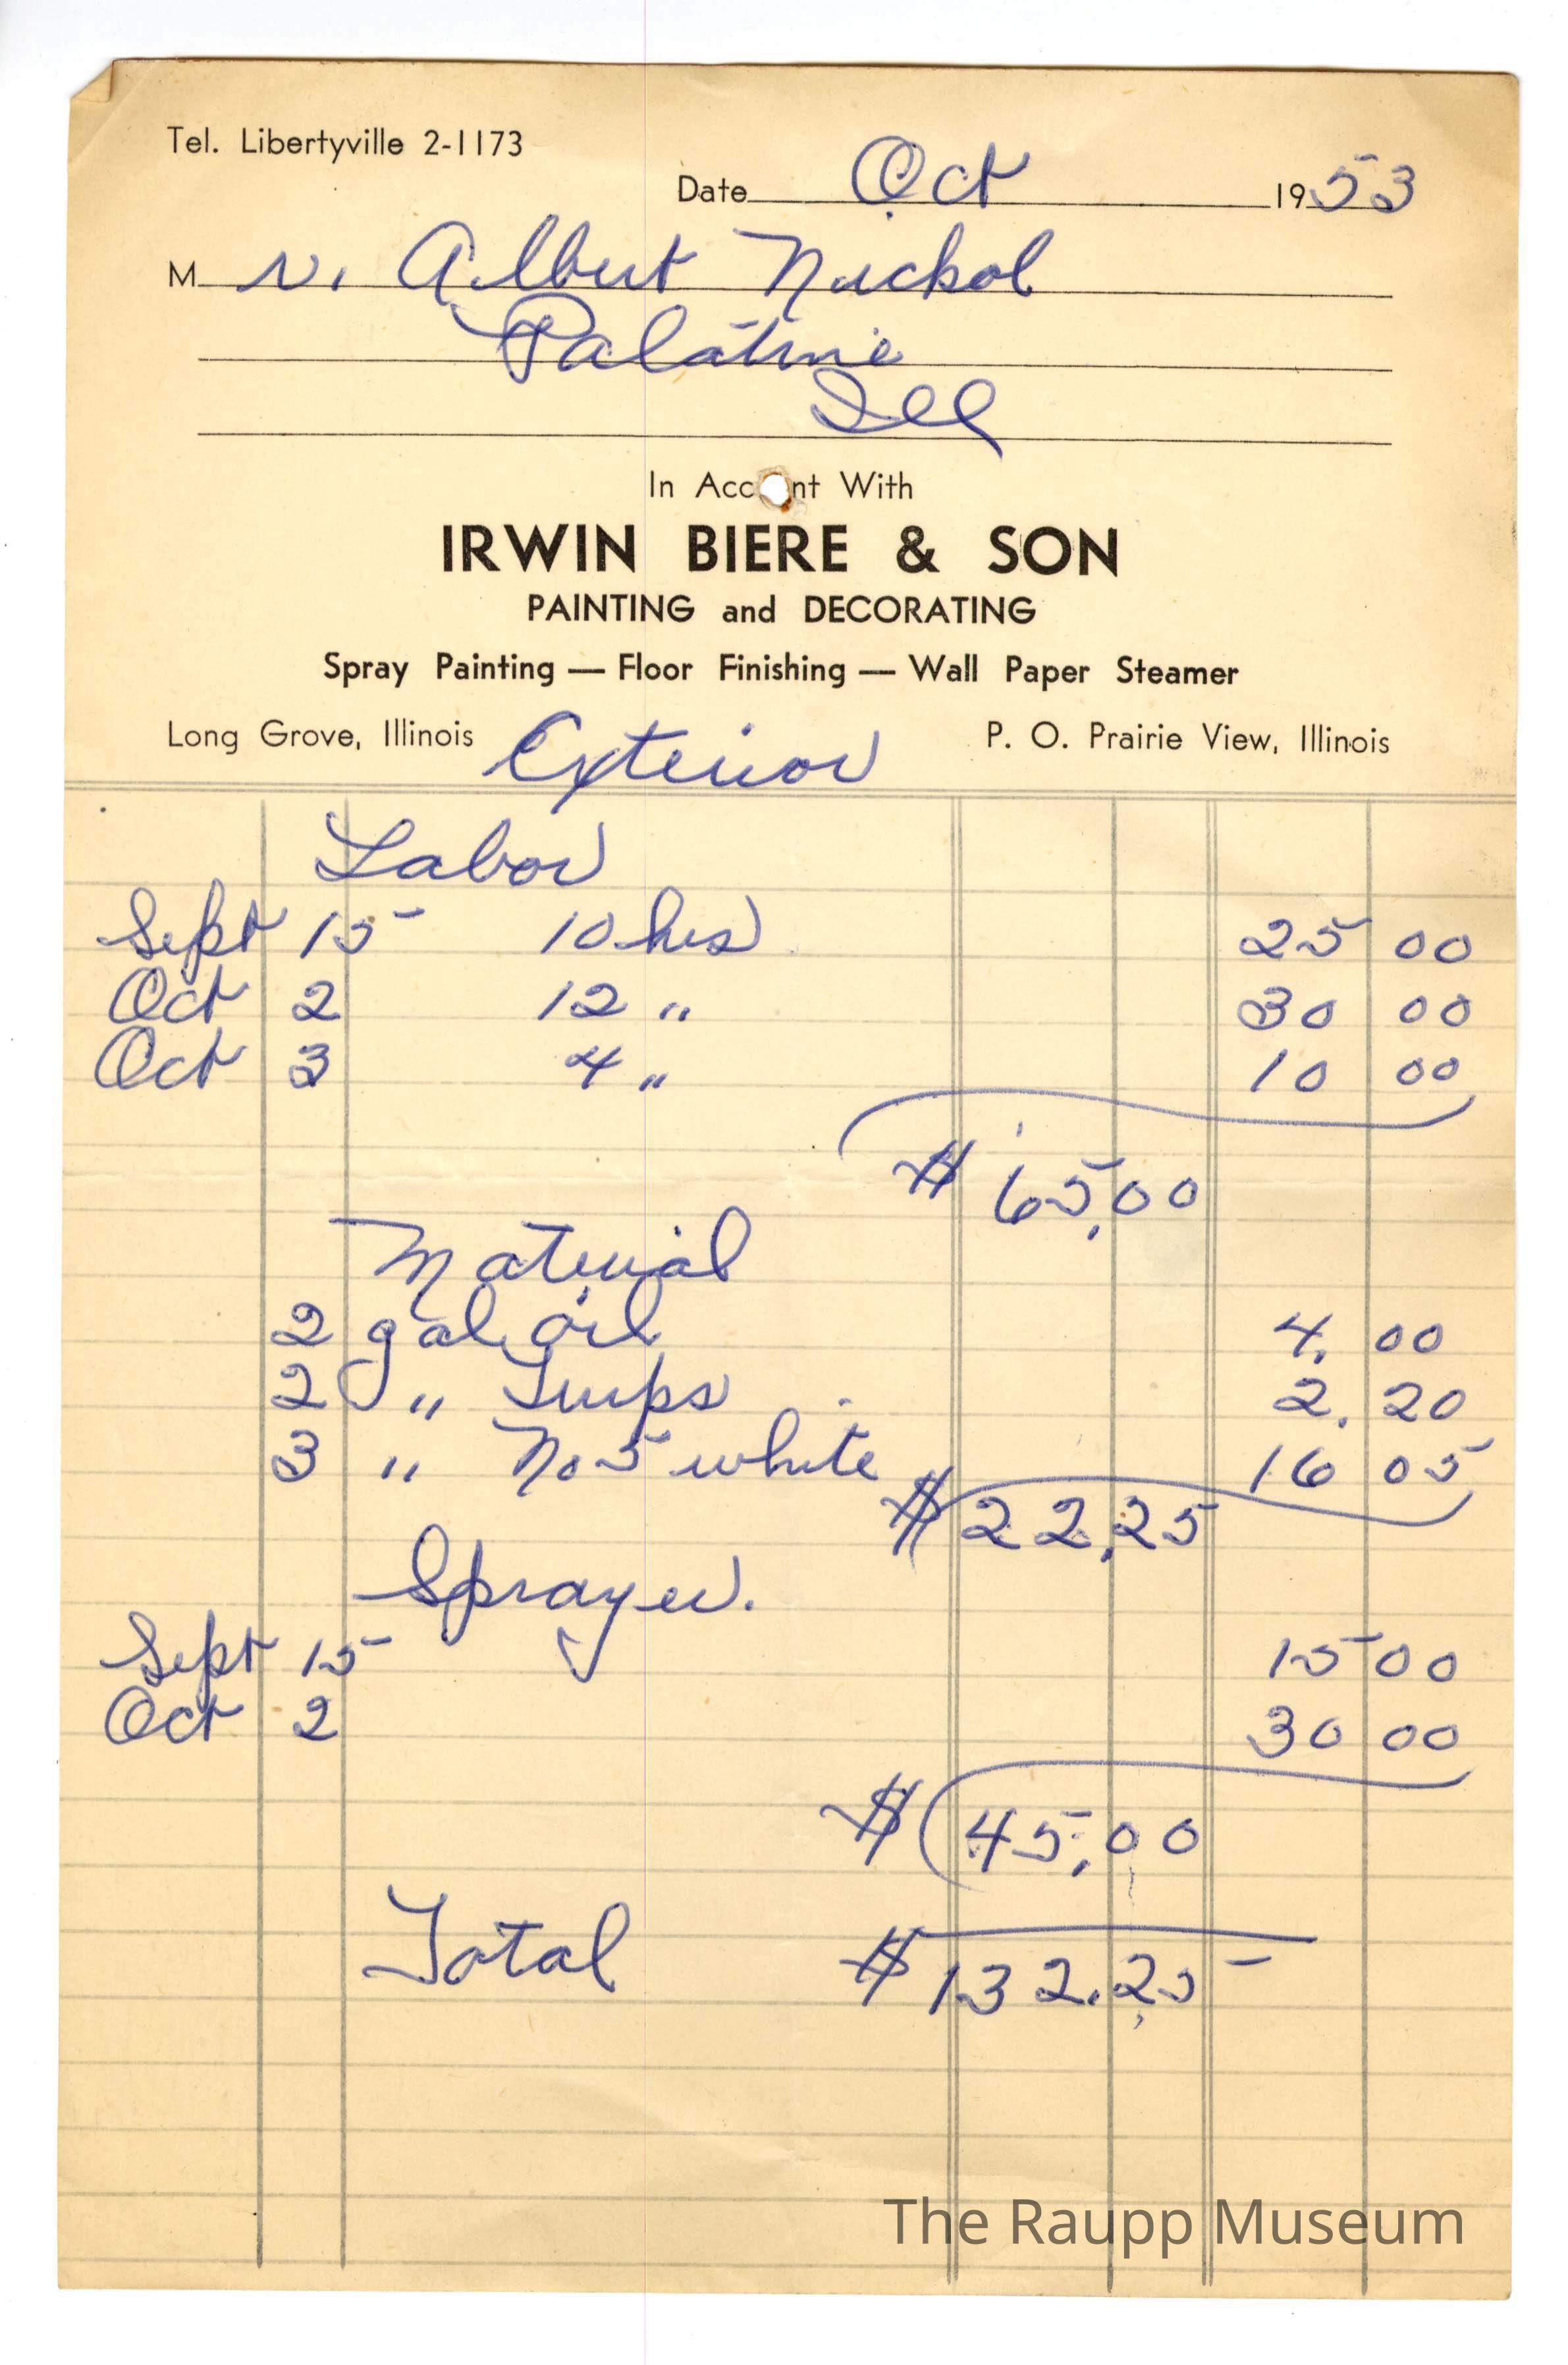 Tel. Libertyville 2-1173
Date Oct 1953
Mr. Albert Nickol
Palatine
Ill
In Acc nt With
IRWIN BIERE & SON
PAINTING and DECORATING
Spray Painting — Floor Finishing — Wall Paper Steamer
Long Grove, Illinois Exterior P. O. Prairie View, Illinois
Labor
Sept 15 10 hrs 25 00
Oct 2 12 " 30 00
Oct 3 4 " 10 00
$ 65.00
Material
2 gal oil 4. 00
2 " Turps 2. 20
3 " No 5 white 16 05
$ 22.25
Sprayer.
Sept 15 15 00
Oct 2 30 00
$ 45.00
Total $ 132.25
The Raupp Museum